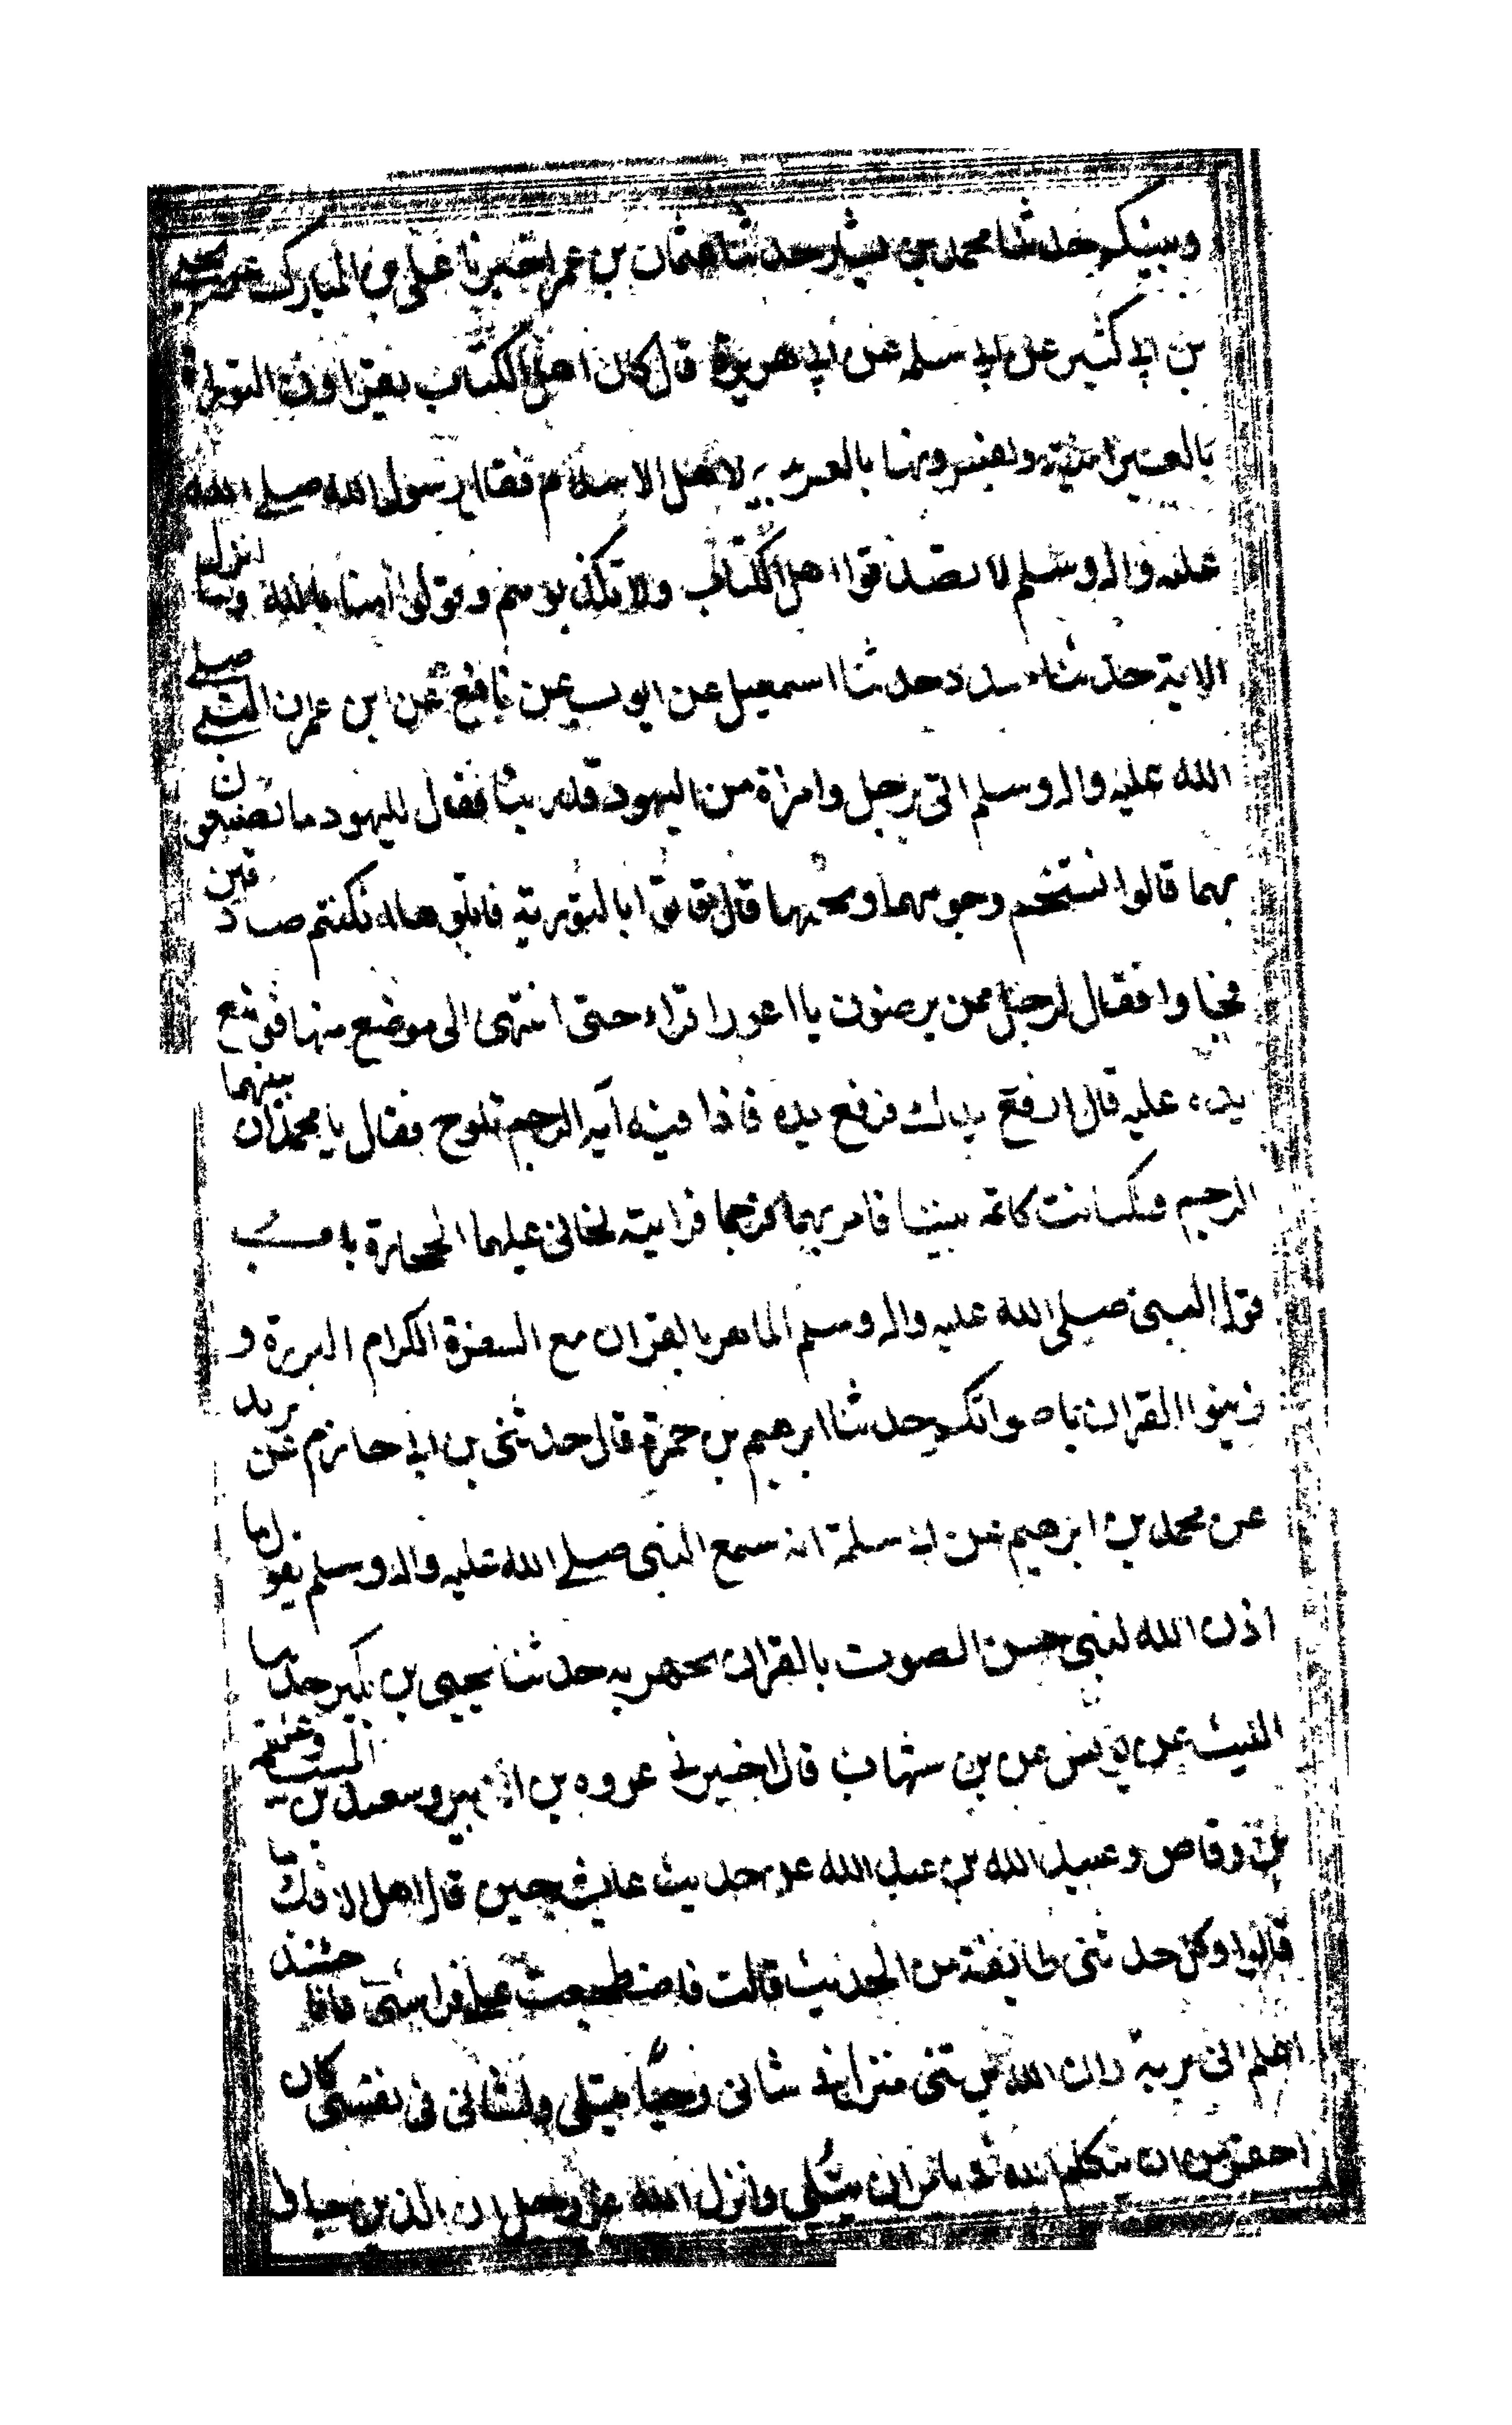 وبينكم حدثنا محمد بن بشار حدثنا عثمان بن عمر اخبرنا على بن المبارك عن يحيى
بن ابى كثير عن ابى سلمة عن ابى هريرة قال كان اهل الكتاب يقراون التورية
بالعبرانية ويفسرونها بالعربيه لاهل الاسلام فقال رسول الله صلى الله
عليه واله وسلم لا تصدقوا اهل الكتاب ولا تكذبوهم وقولوا امنا بالله وما انزل
الاية حدثنا مسدد حدثنا اسمعيل عن ايوب عن نافع عن ابن عمر ان النبى صلى
الله عليه واله وسلم اتى برجل وامراة من اليهود قد زنيا فقال لليهود ما تصنعون
بهما قالوا نسخم وجوههما ونخزيهما قال فاتوا بالتورية فاتلوها ان كنتم صادقين
فجاوا فقال لرجل ممن يرضون يا اعور اقراء حتى انتهى الى موضع منها فوضع
يده عليه قال ارفع يدك فرفع يده فاذا فيه آية الرجم تلوح فقال يا محمد ان بينهما
الرجم ولكنا نتكاتمه بيننا فامر بهما فرجما فرايته يجانى عليهما الحجارة باب
قول النبى صلى الله عليه واله وسلم الماهر بالقران مع السفرة الكرام البررة و
زينوا القران باصواتكم حدثنا ابرهيم بن حمزة قال حدثنى بن ابى حازم عن يزيد
عن محمد بن ابرهيم عن ابى سلمة انه سمع النبى صلى الله عليه واله وسلم يقول ما
اذن الله لنبى حسن الصوت بالقران يجهر به حدثنا يحيى بن بكير حدثنا
الليث عن يونس عن بن شهاب قال اخبرنى عروه بن الزبير وسعيد بن المسيب وعلقمة
بن وقاص وعبيد الله بن عبد الله عن حديث عايشه حين قال اهل الافك ما
قالوا وكل حدثنى طايفة من الحديث قالت فاضطجعت على فراشى وانا حينئذ
اعلم انى برية وان الله منزل فى شانى وحيا يتلى ولشانى فى نفسى كان
احقر من ان يتكلم الله فى بامر ان يتلى وانزل الله عز وجل ان الذين جاوا